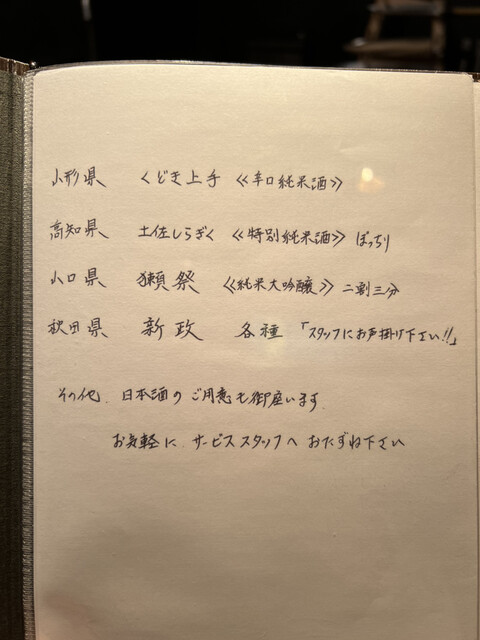 山形県 くどき上手 《辛口純米酒》
高知県 土佐しらぎく 《特別純米酒》 ぼっちり
山口県 獺祭 《純米大吟醸》 二割三分
秋田県 新政 各種 「スタッフにお声掛け下さい!!」
その他、日本酒のご用意も御座います。
お気軽に、サービススタッフへおたずね下さい